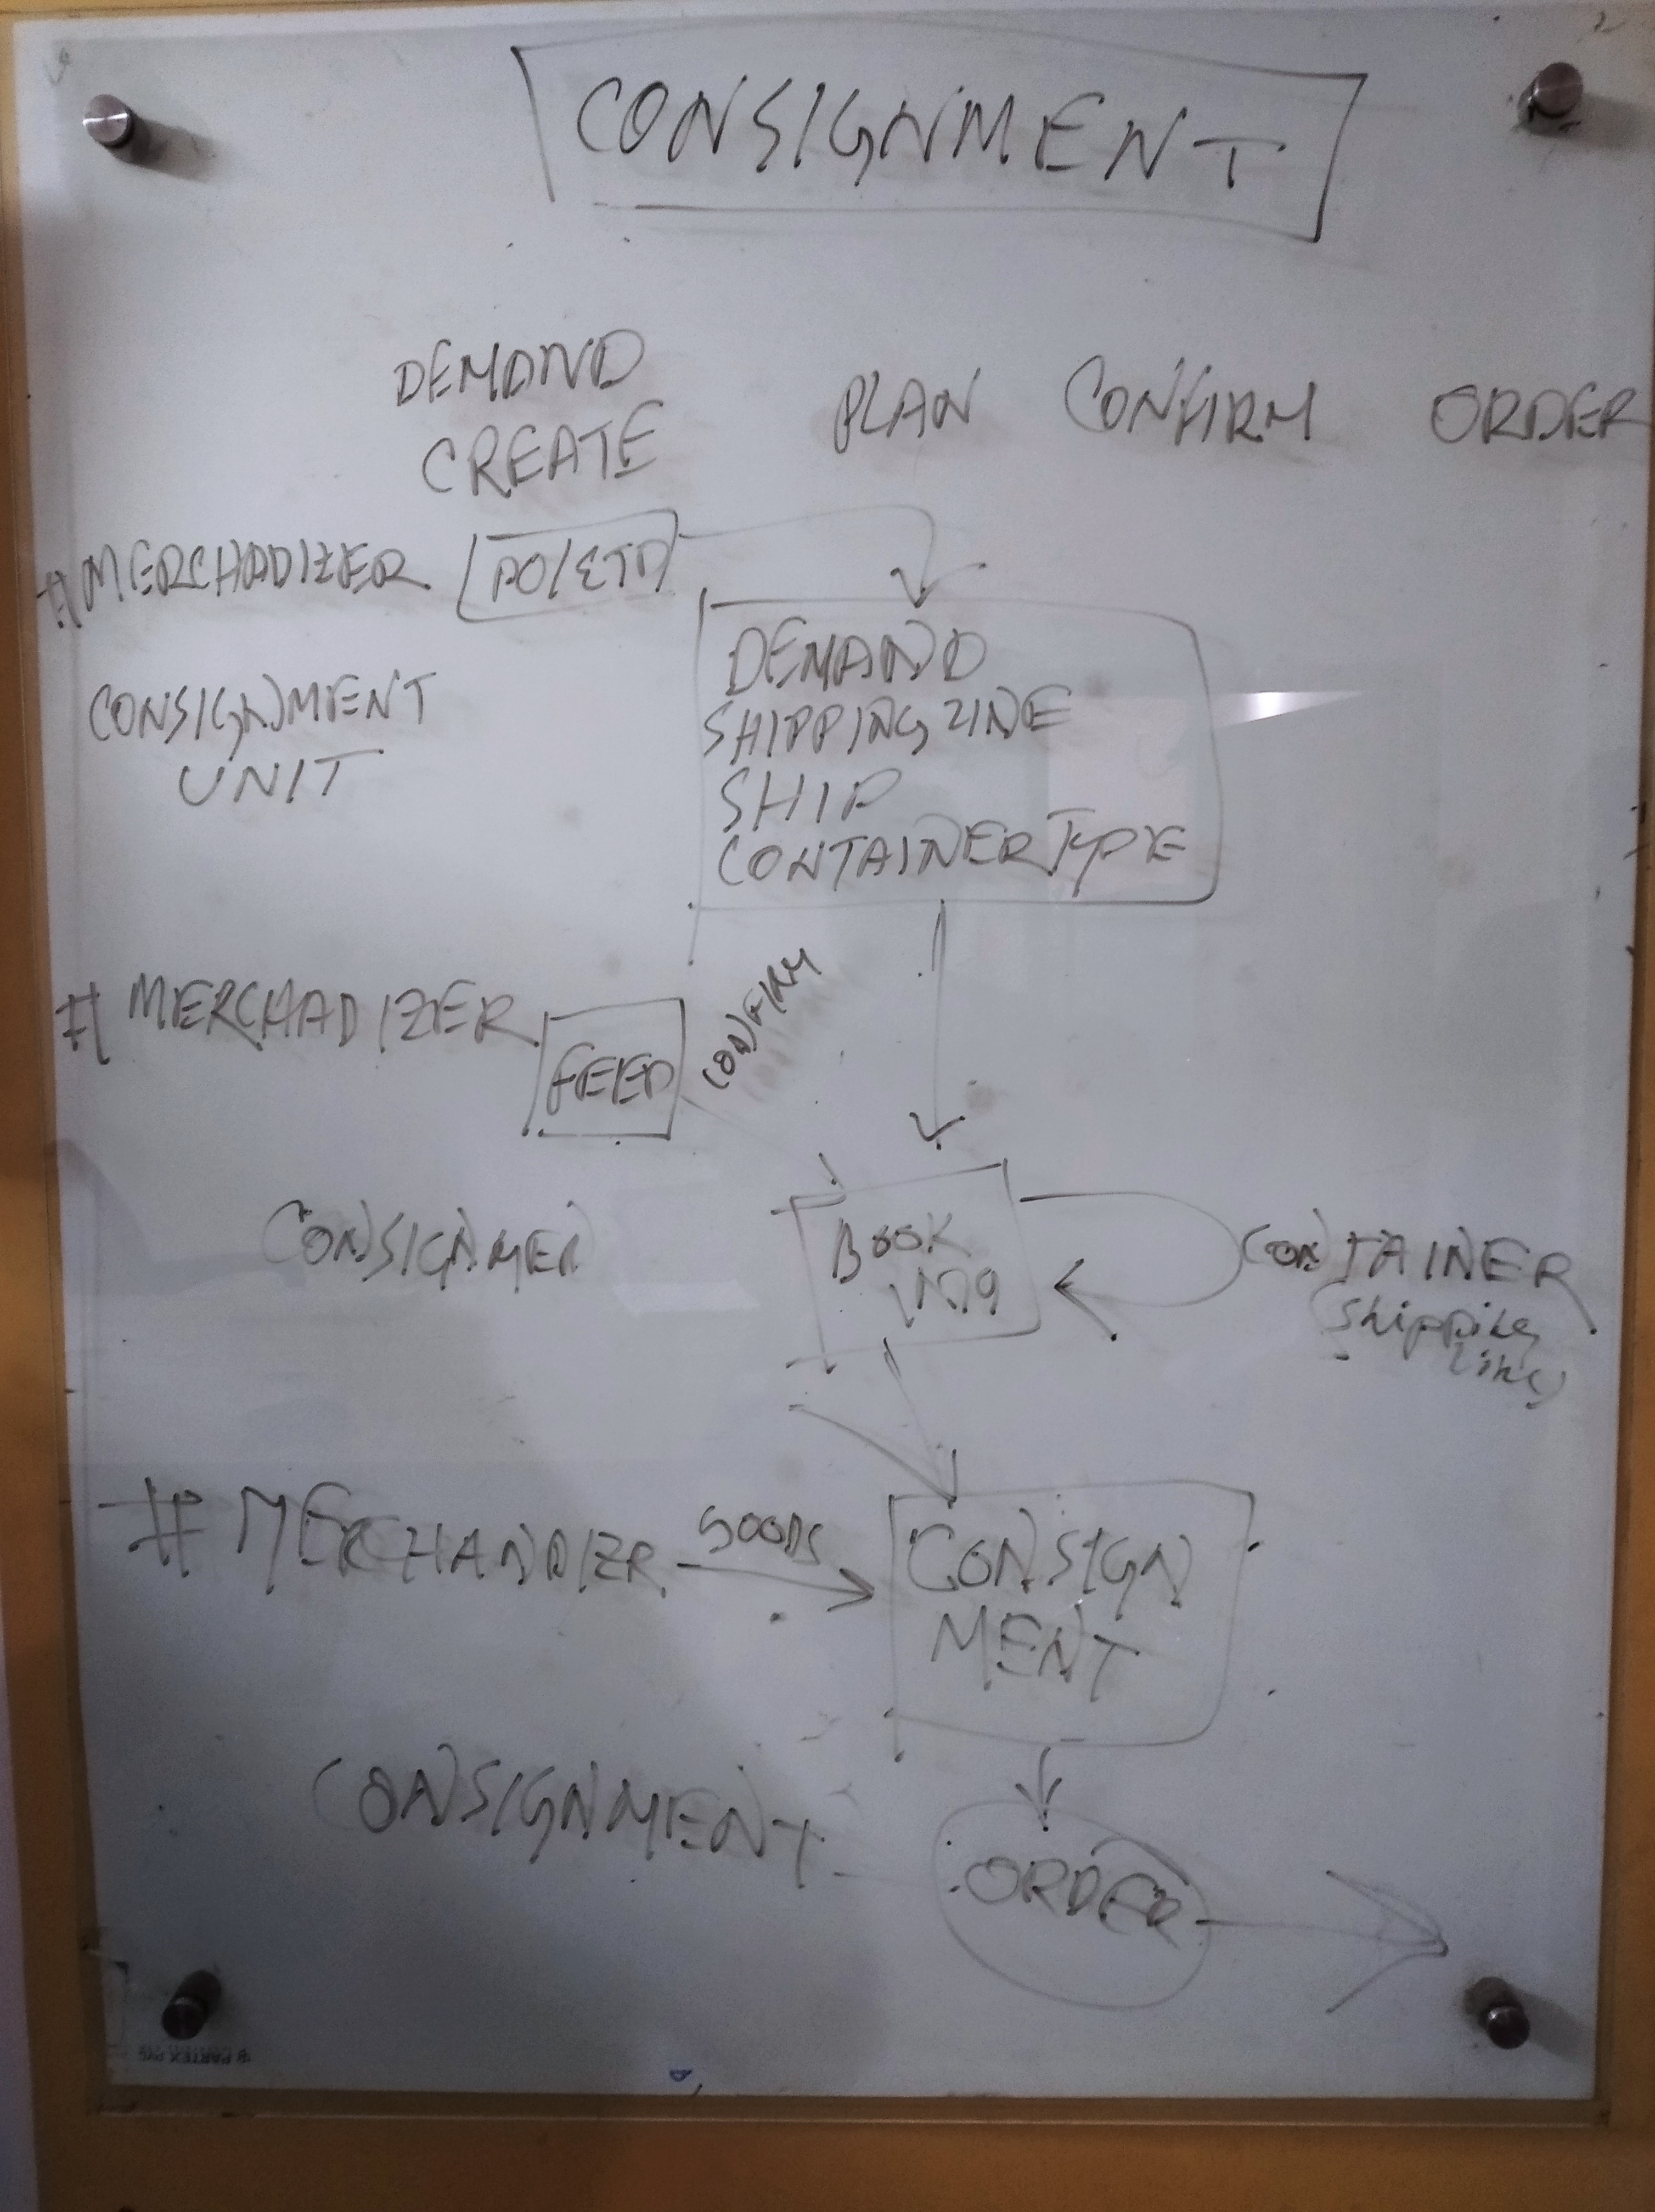 CONSIGNMENT
DEMAND
CREATE
PLAN CONFIRM ORDER
#MERCHADIZER PO/ETD
DEMAND
SHIPPING LINE
SHIP
CONTAINER TYPE
CONSIGNMENT
UNIT
# MERCHADIZER
FEED
CONFIRM
CONSIGNMEN
BOOK
ING
CONTAINER
(Shipping
Line)
# MERCHANDIZR GOODS
CONSIGN
MENT
CONSIGNMENT
ORDER